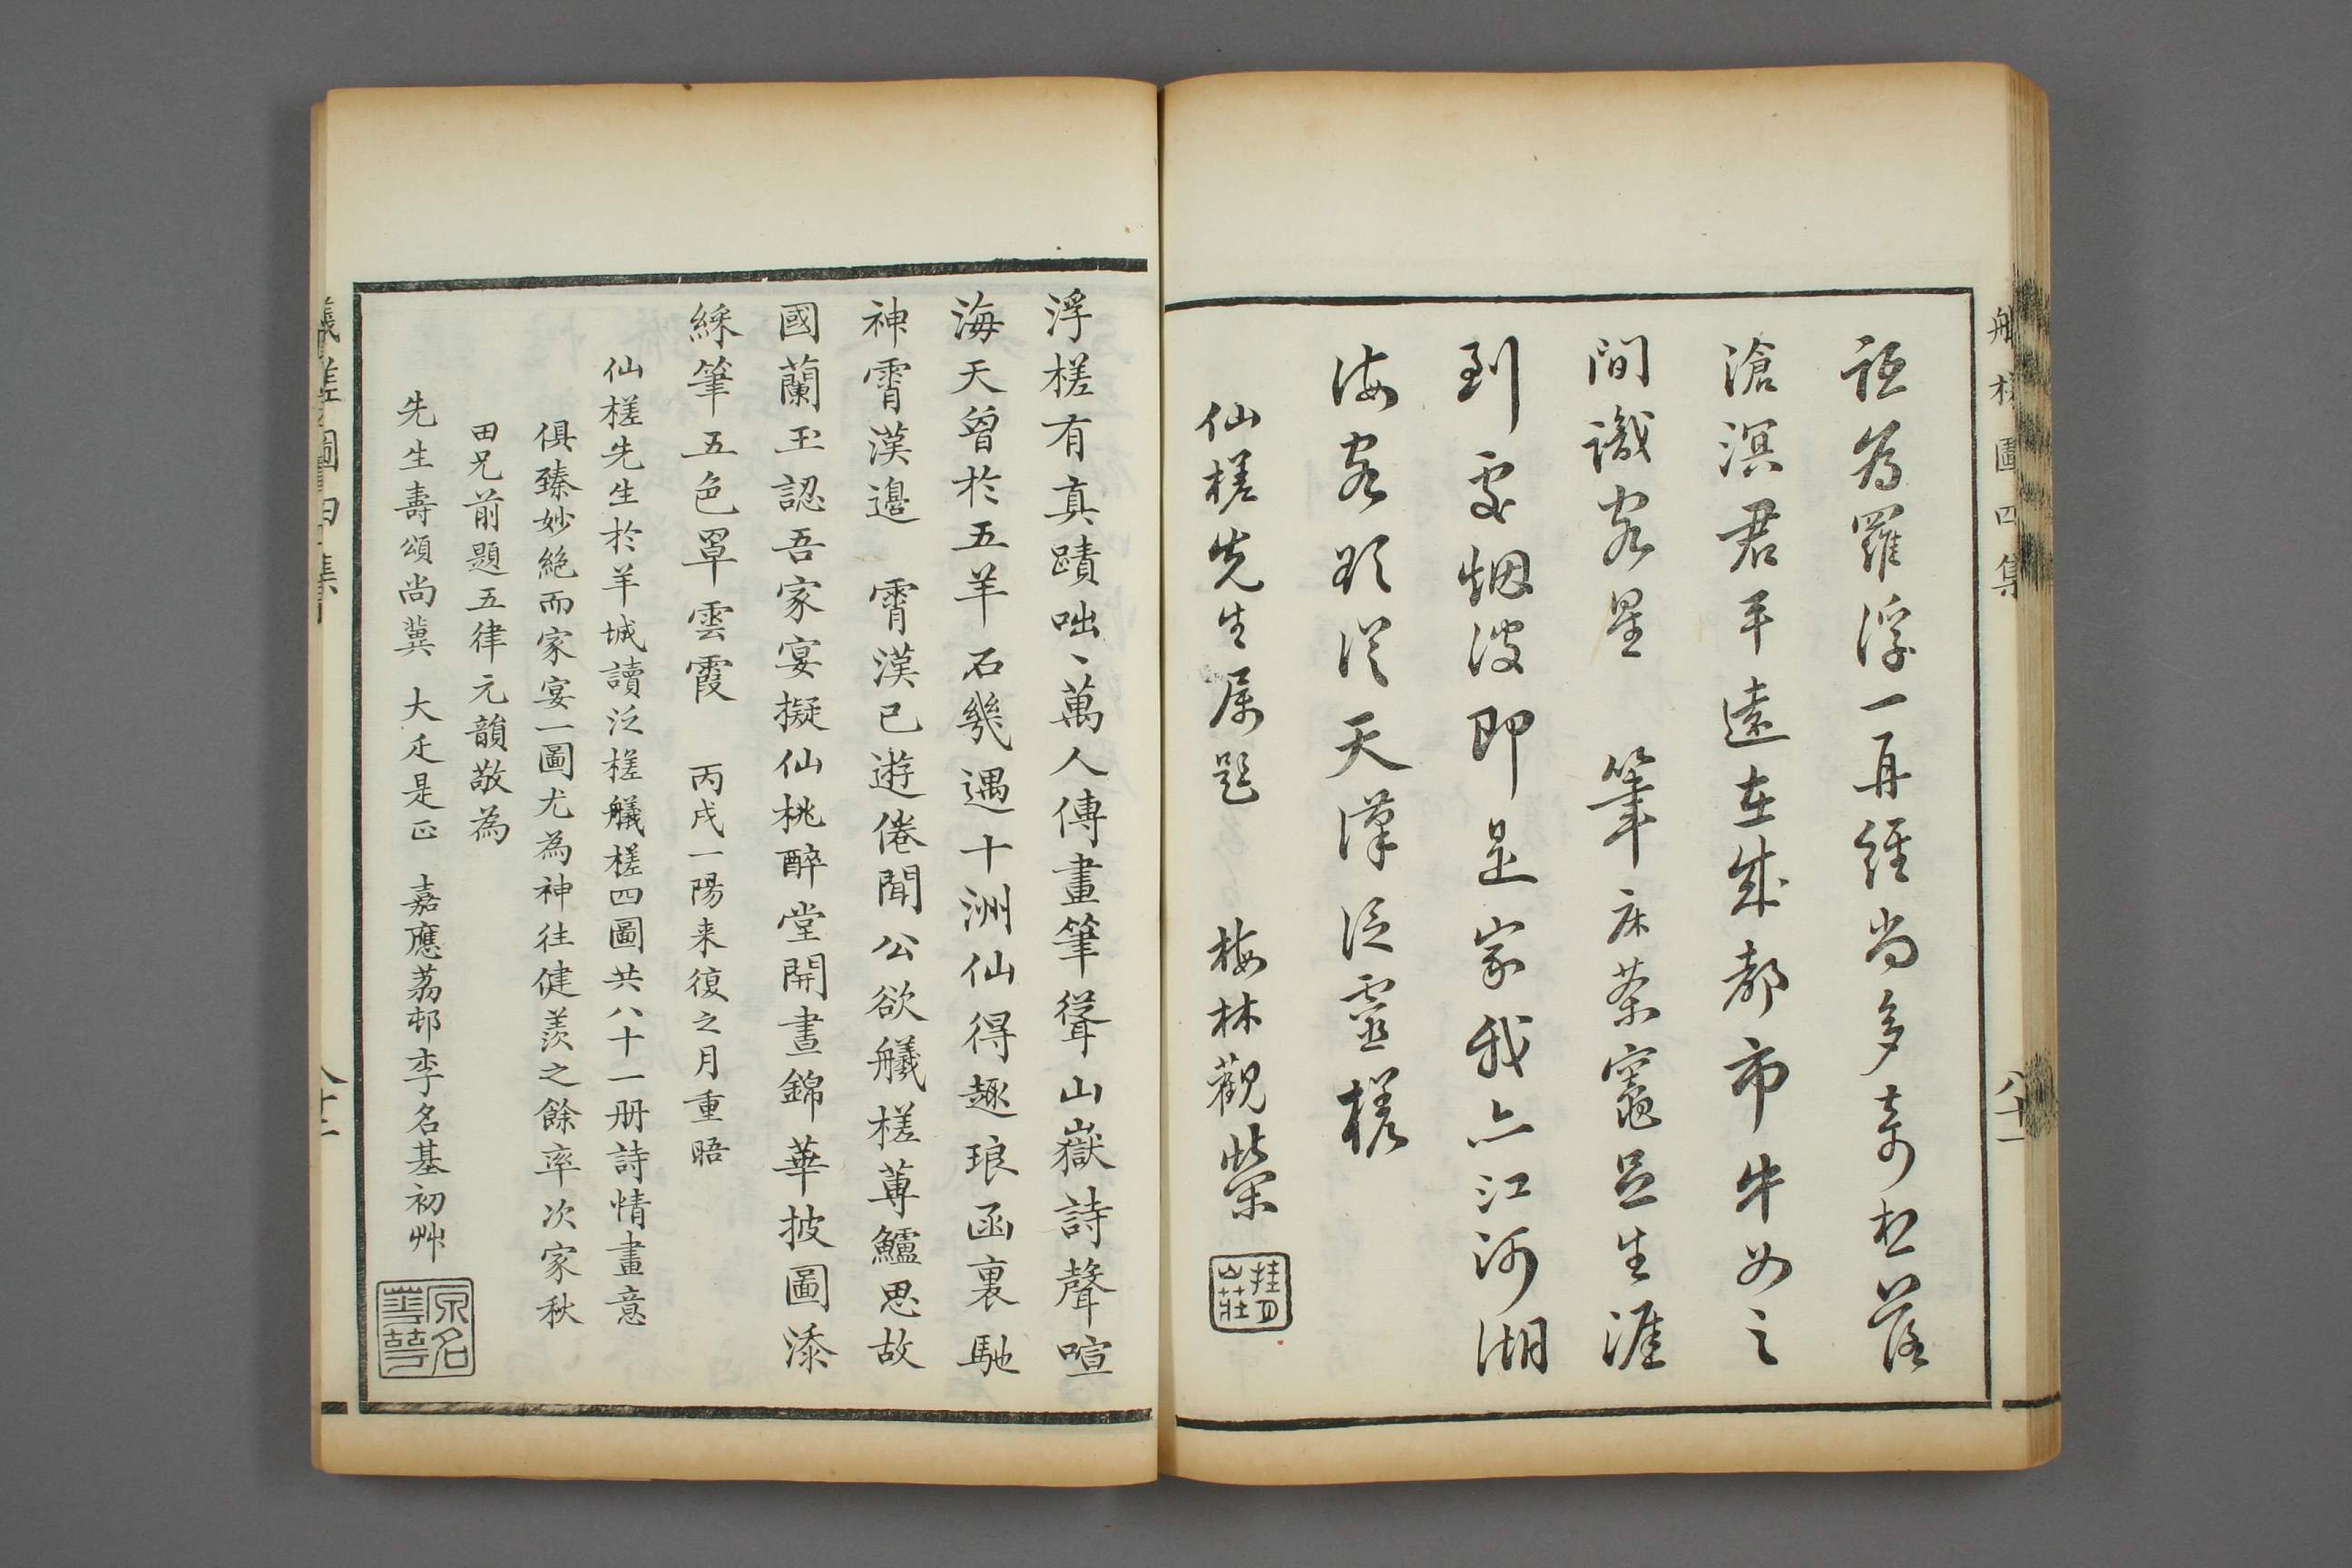 祗為羅浮一再經尚多奇想落
滄溟君平遠在成都市牛女之
間識客星　筆床茶竈足生涯
到處烟波即是家我亦江河湖
海客欲從天漢泛靈槎
仙槎先生属題　梅林觀榮
桂月山莊
八十一
浮槎有真蹟咄〻萬人傳畫筆聳山嶽詩聲喧
海天曾於五羊石幾遇十洲仙得趣琅函裏馳
神霄漢邊　霄漢已遊倦聞公欲艤槎蓴鱸思故
國蘭玉認吾家宴擬仙桃醉堂開晝錦華披圖添
綵筆五色罩雲霞　丙戌一陽来復之月重晤
仙槎先生於羊城讀泛槎艤槎四圖共八十一册詩情畫意
俱臻妙絶而家宴一圖尤為神往健羨之餘率次家秋
田兄前題五律元韻敬為
先生壽頌尚冀　大疋是正　嘉應荔邨李名基初艸
艤槎圖四集
八十二